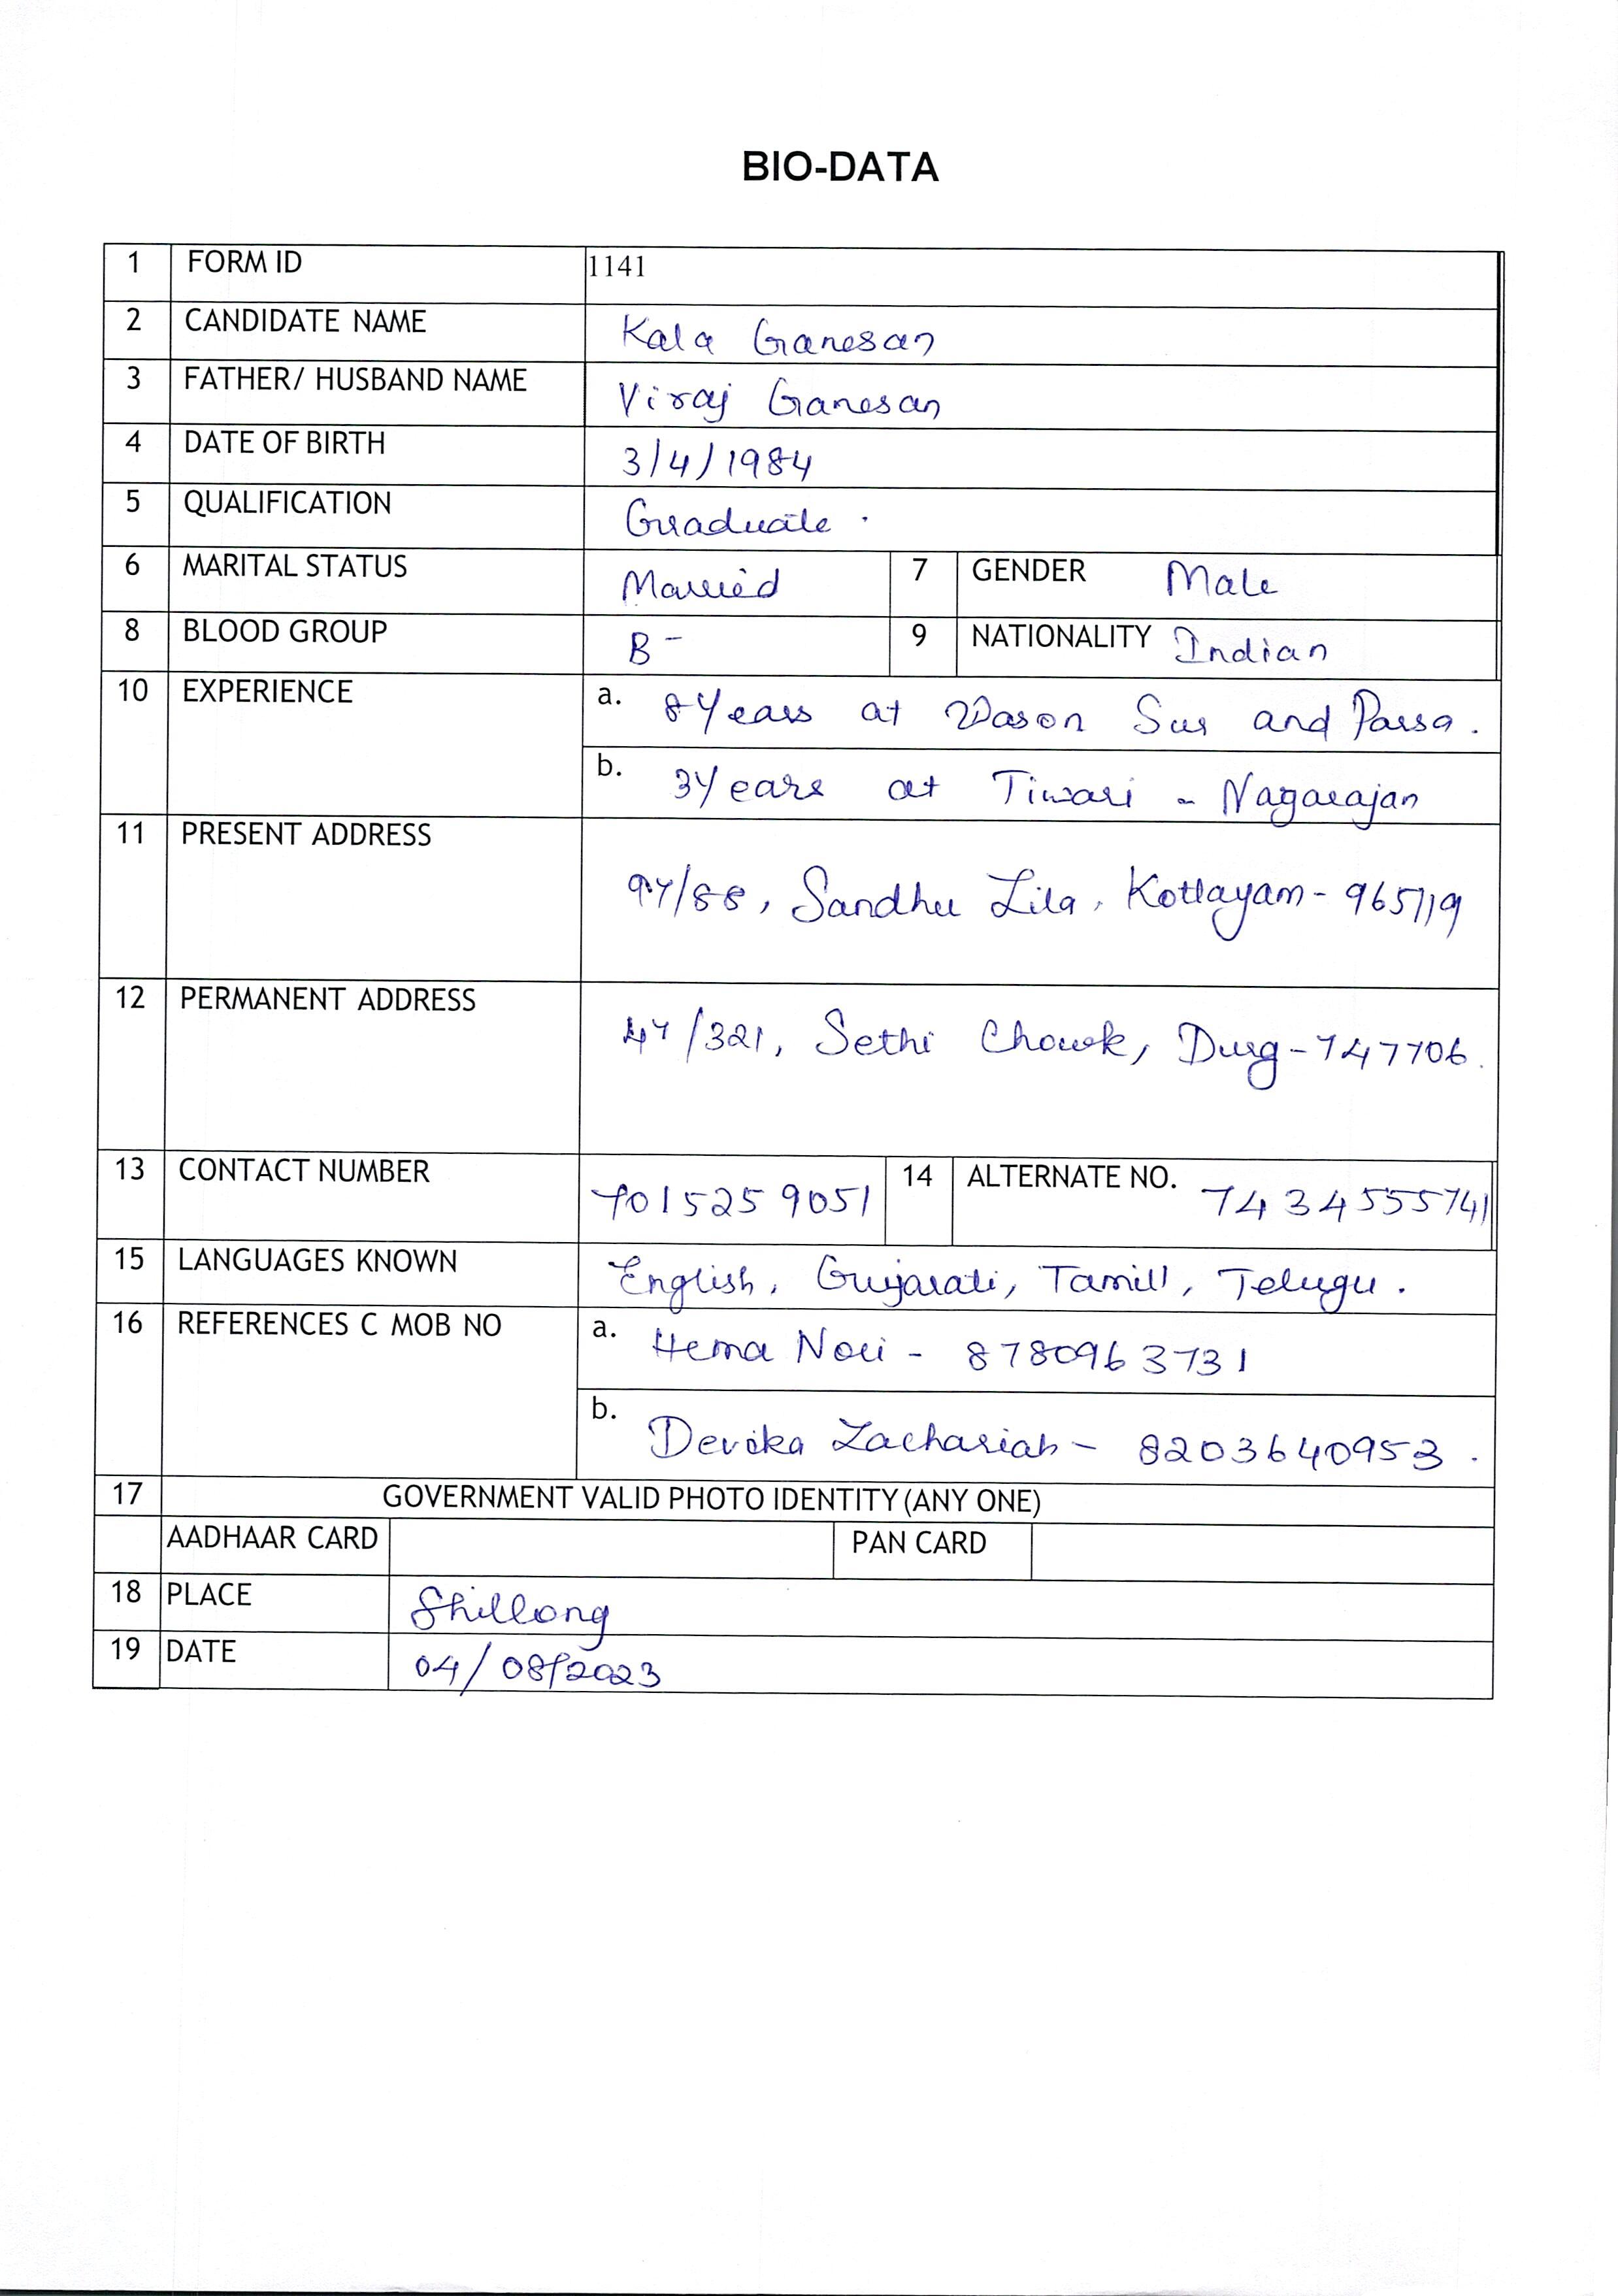 BIO-DATA
1 FORM ID 1141
2 CANDIDATE NAME Kala Ganesan
3 FATHER/ HUSBAND NAME Viraj Ganesan
4 DATE OF BIRTH 3/4/1984
5 QUALIFICATION Graduate .
6 MARITAL STATUS Married 7 GENDER Male
8 BLOOD GROUP B- 9 NATIONALITY Indian
10 EXPERIENCE a. 8 Years at Wason Sur and Parsa.
b. 3 Years at Tiwari - Nagarajan
11 PRESENT ADDRESS
97/88, Sandhu Lila, Kottayam - 965719
12 PERMANENT ADDRESS
47/321, Sethi Chowk, Durg - 747706.
13 CONTACT NUMBER 7015259051 14 ALTERNATE NO. 7434555741
15 LANGUAGES KNOWN English, Gujarati, Tamill, Telugu.
16 REFERENCES C MOB NO a. Hema Nori - 8780963731
b. Devika Zachariah - 8203640953.
17 GOVERNMENT VALID PHOTO IDENTITY (ANY ONE)
AADHAAR CARD PAN CARD
18 PLACE Shillong
19 DATE 04/08/2023